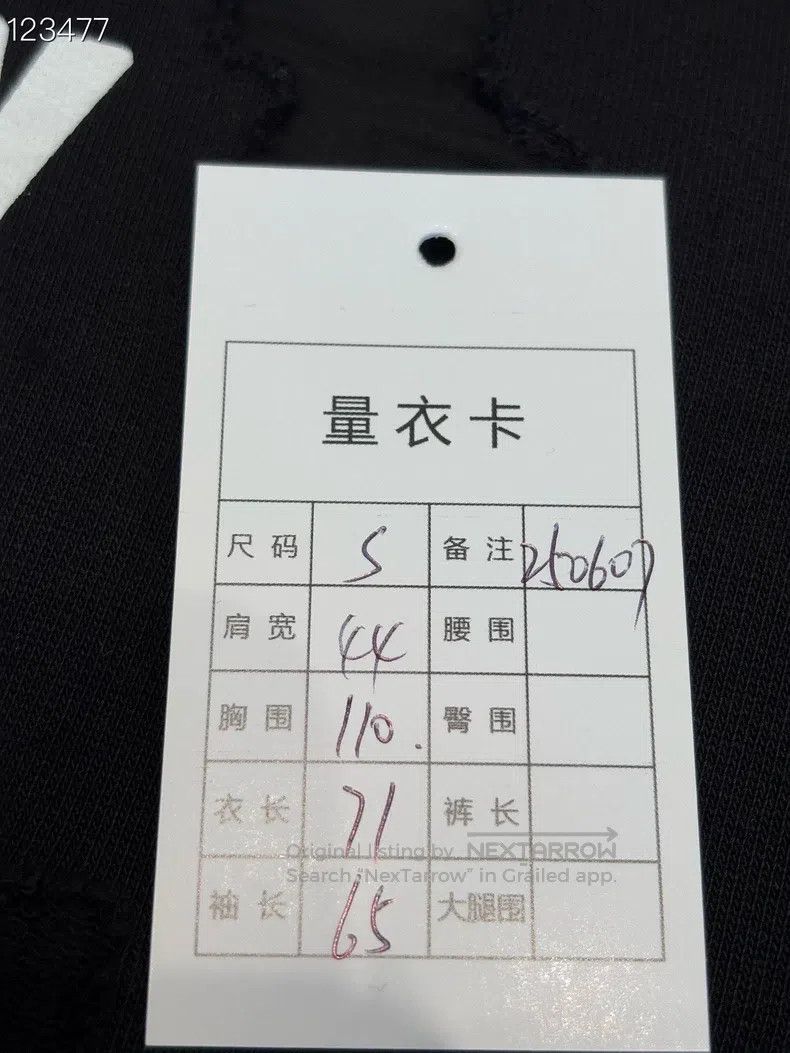 123477
量衣卡
尺码 S 备注 250607
肩宽 44 腰围
胸围 110. 臀围
衣长 71 裤长
Original listing by NEXTARROW
Search "NexTarrow" in Grailed app.
袖长 65 大腿围